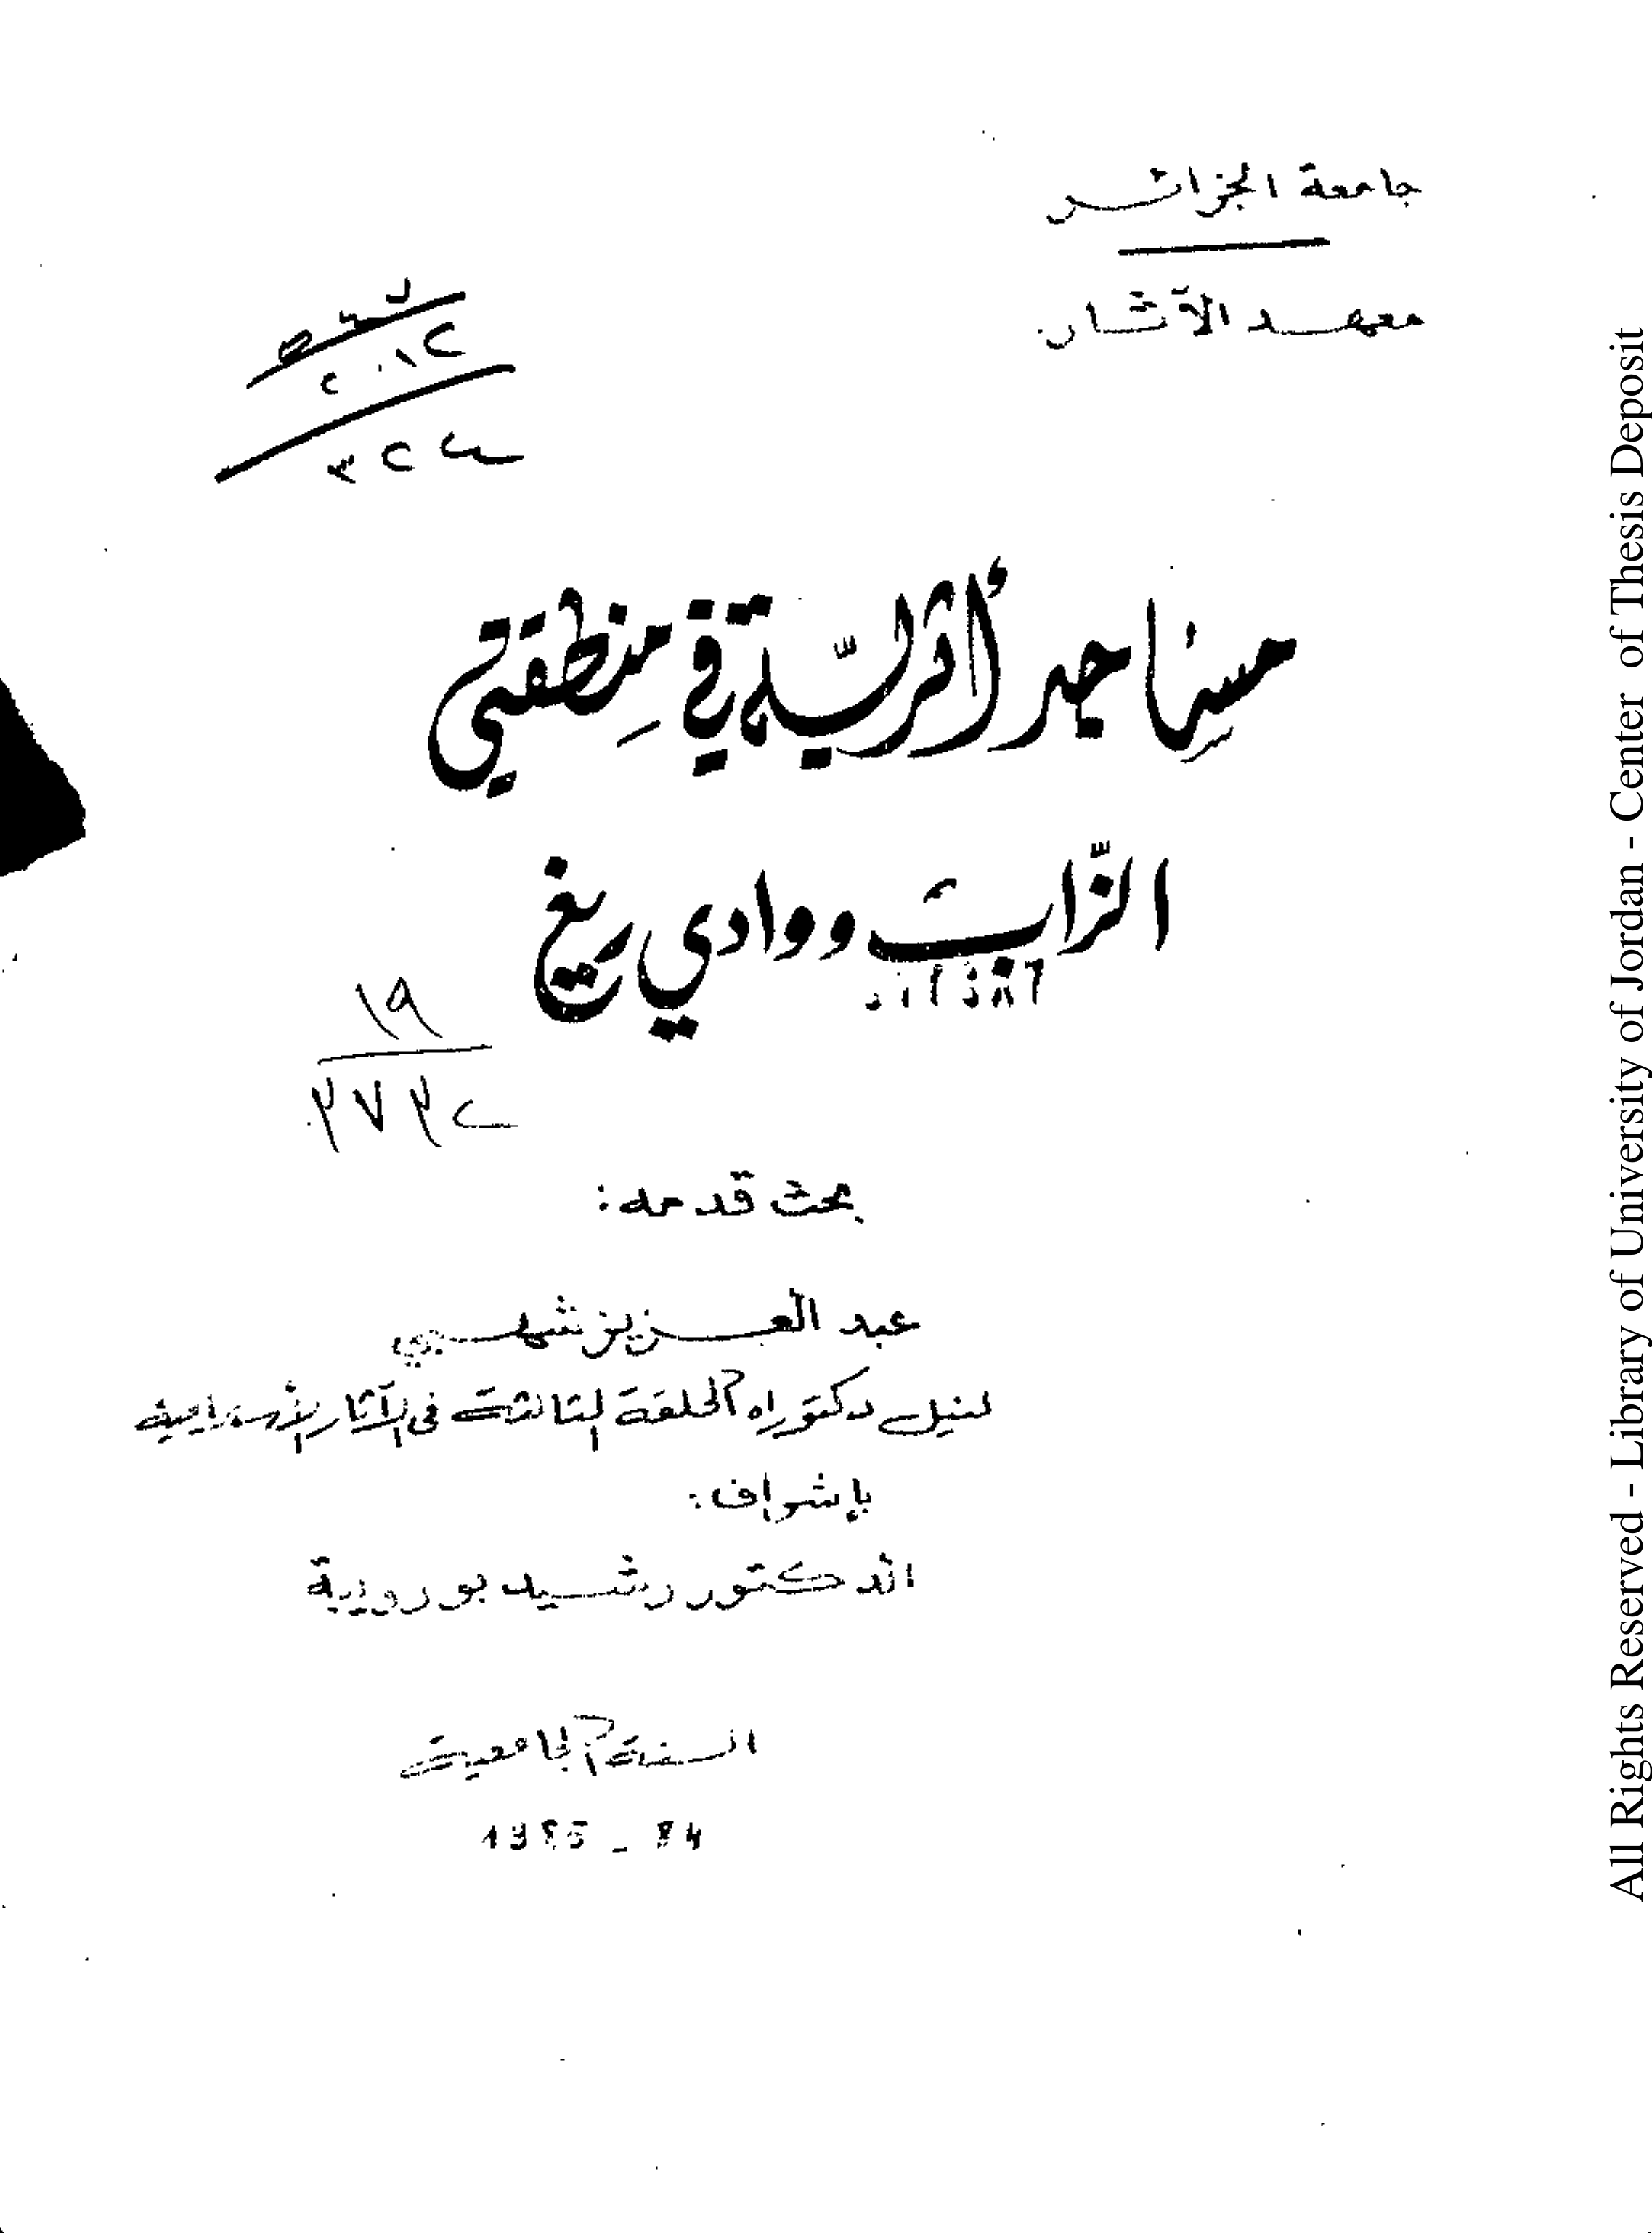 جامعة الجزائر
معهد الآثار
مساجد أثرية في منطقتي
الزّاب ووادي ريغ
بحث قدمه:
عبد العزيز شهبي
لنيل دكتوراه الحلقة الثالثة في الآثار الإسلامية
بإشراف:
الدكتور رشيد بورويبة
السنة الجامعية
1985 - 84
All Rights Reserved - Library of University of Jordan - Center of Thesis Deposit